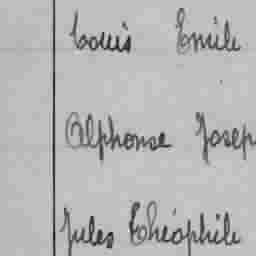 Louis Emile
Alphonse Josep
Jules Théophile